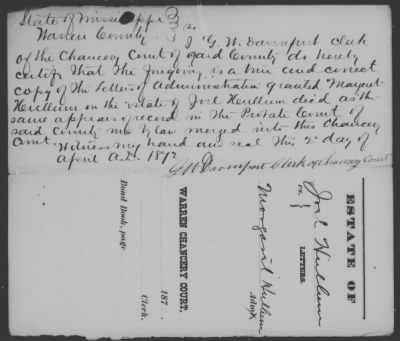 State of Mississippi }
Warren County } ss.
I G. W. Davenport clerk
of the Chancery Court of said County do hereby
certify that the foregoing is a true and correct
copy of the letters of Administration granted Margaret
Hullum on the estate of Joel Hullum decd as the
same appears of record in the Probate Court of
said County now by law merged into this Chancery
Court. Witness my hand and seal this 2d day of
April A.D. 1872
G W Davenport Clerk of Chancery Court
ESTATE OF
Joel Hullum
on } LETTERS.
Margaret Hullum
Admx
WARREN CHANCERY COURT.
187
Clerk.
Bond Book, page